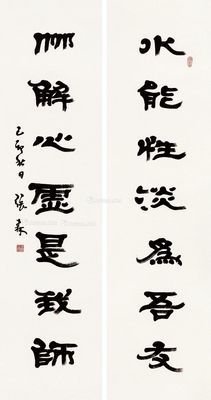 水能性淡為吾友
竹解心虛是我師
秋日 張森